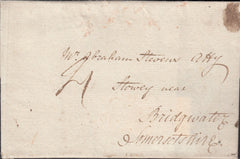 Mr. Abraham Stevens Atty
Stowey near
Bridgwater
Somersetshire